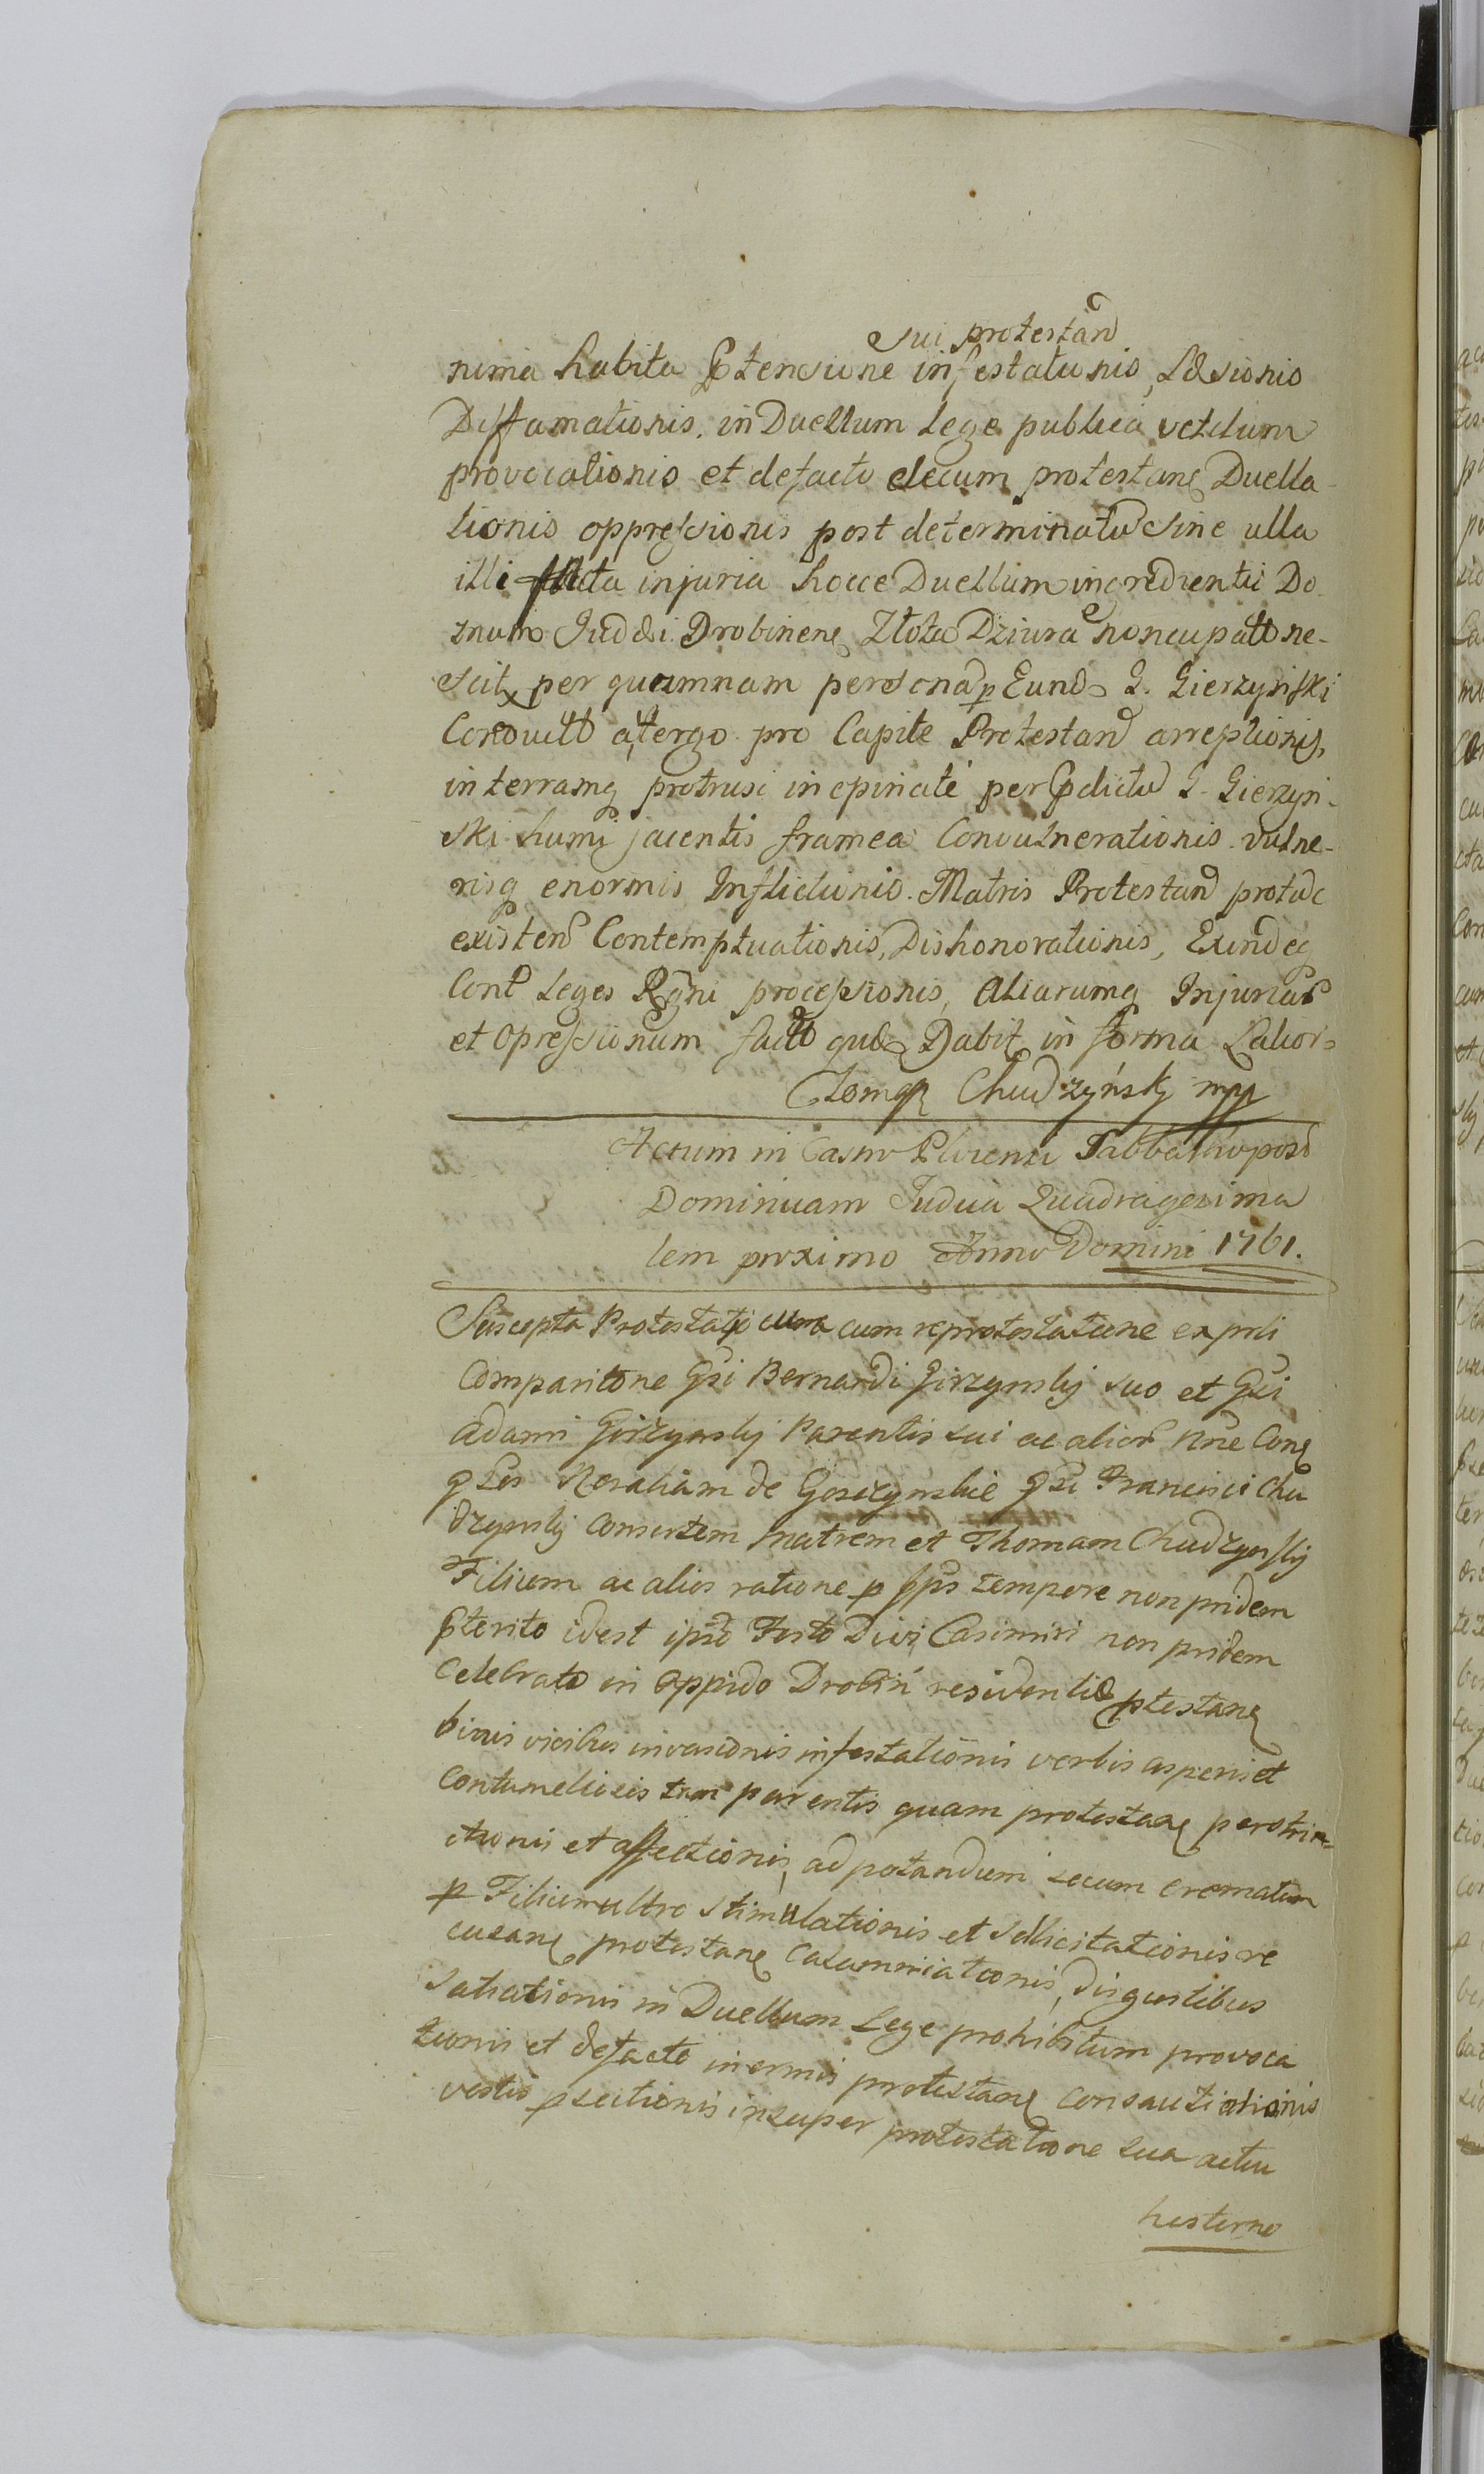 sui protestand
nima habita Ptensione infestationis, Laesionis
Diffamationis, in Duellum Lege publica vetitum
provocationis et defacto secum protestane Duella-
tionis oppressionis post determinatu sine ulla
illi illata injuria hocce Duellum ingredientii Do
mum Judaei Drobinens Złota Dziura noncupatto ne-
scit per quamnam persona p Eund G. Gierzynski
Conductto a tergo pro Capite Protestand arreptionis,
in terramq protrusi inopinate per Pdictu G. Gierzyn-
ski humi jacentis framea Convulnerationis vulne-
risq enormis Inflictionis. Matris Protestand protuc
existen Contemptuationis, Dishonorationis, Exindeq
Cont Leges Rgni processionis, aliarumq Injuriar
et opressionum factto quae Dabit in forma Latior
Chudzyński mpp
Actum in Castro Plocensi Sabbatho post
Dominicam Judica Quadragesima
lem proximo Anno Domini 1761.
Suscepta Protestatio una cum reprotestatione ex prli
Comparitone Gsi Bernardi Girzynskij suo et Gsi
Adami Girzynskij Parentis sui ac alior Nne Cone
gsos Rosaliam de Goszczynskie gsi Francisci Chu
dzynskij Consortem matrem et Thomam Chudzynskij
Filium ac alios ratione p ipsos tempore non pridem
pterito idest ipso Festo Divi Casimiri non pridem
Celebrato in oppido Drobin residentiae ptestane
binis vicibus invasionis infestationis verbis asperis et
Contumeliosis tam parentis quam protestane perstrin-
ctionis et affectionis, ad potandum secum crematum
p Filium ultro stimulationis et sollicitationis re
cusane protestane Calumniationis, disgustibus
Satiationis in Duellum Lege prohibitum provoca
tionis et defacto inermis protestane consautiationis
vestis psectionis insuper protestatione sua actu
hesterno